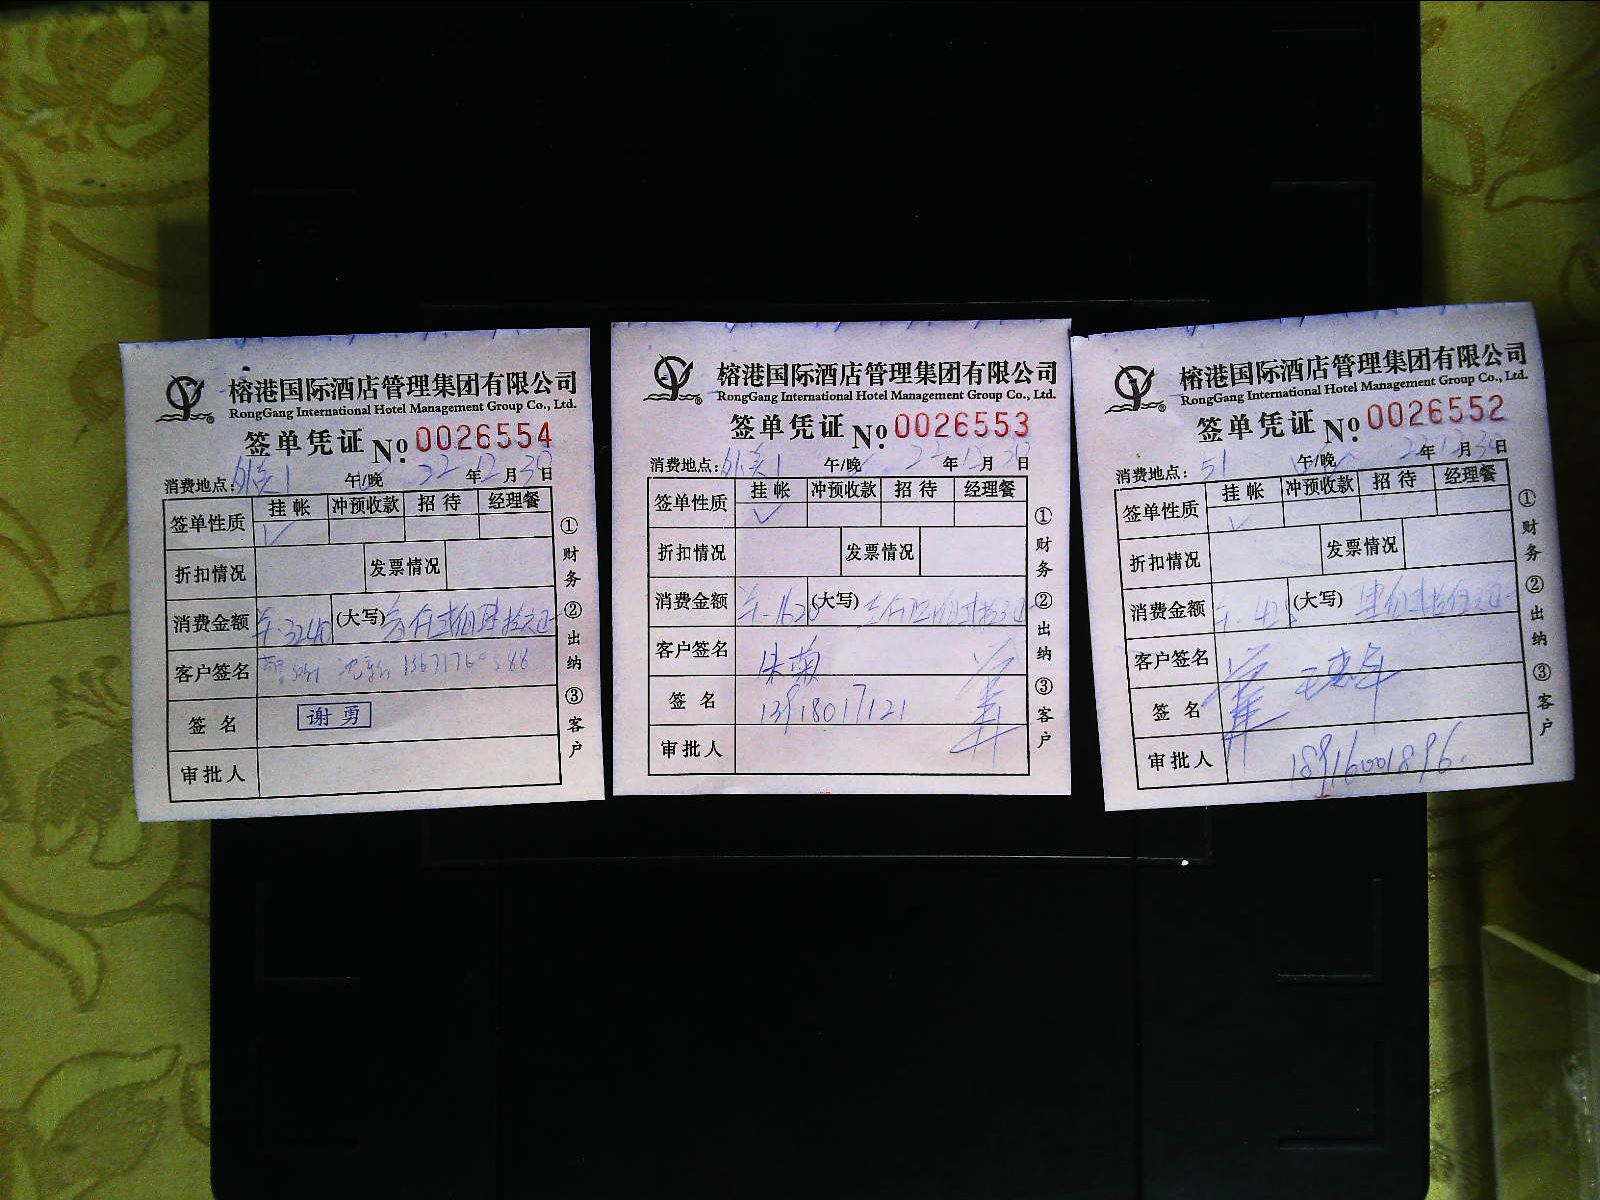 榕港国际酒店管理集团有限公司
RongGang International Hotel Management Group Co., Ltd.
签单凭证 No. 0026554
消费地点: 1 午/晚 22年12月30日
签单性质 挂帐 冲预收款 招待 经理餐
✓
折扣情况 发票情况
消费金额 3240 (大写)
客户签名
签名 谢勇
审批人
①财务 ②出纳 ③客户
榕港国际酒店管理集团有限公司
RongGang International Hotel Management Group Co., Ltd.
签单凭证 No. 0026553
消费地点: 1 午/晚 22年12月30日
签单性质 挂帐 冲预收款 招待 经理餐
✓
折扣情况 发票情况
消费金额 1620 (大写)
客户签名 朱菊
签名 13918017121
审批人
①财务 ②出纳 ③客户
榕港国际酒店管理集团有限公司
RongGang International Hotel Management Group Co., Ltd.
签单凭证 No. 0026552
消费地点: 51 午/晚 22年12月30日
签单性质 挂帐 冲预收款 招待 经理餐
✓
折扣情况 发票情况
消费金额 (大写)
客户签名
签名
审批人 18916001896.
①财务 ②出纳 ③客户